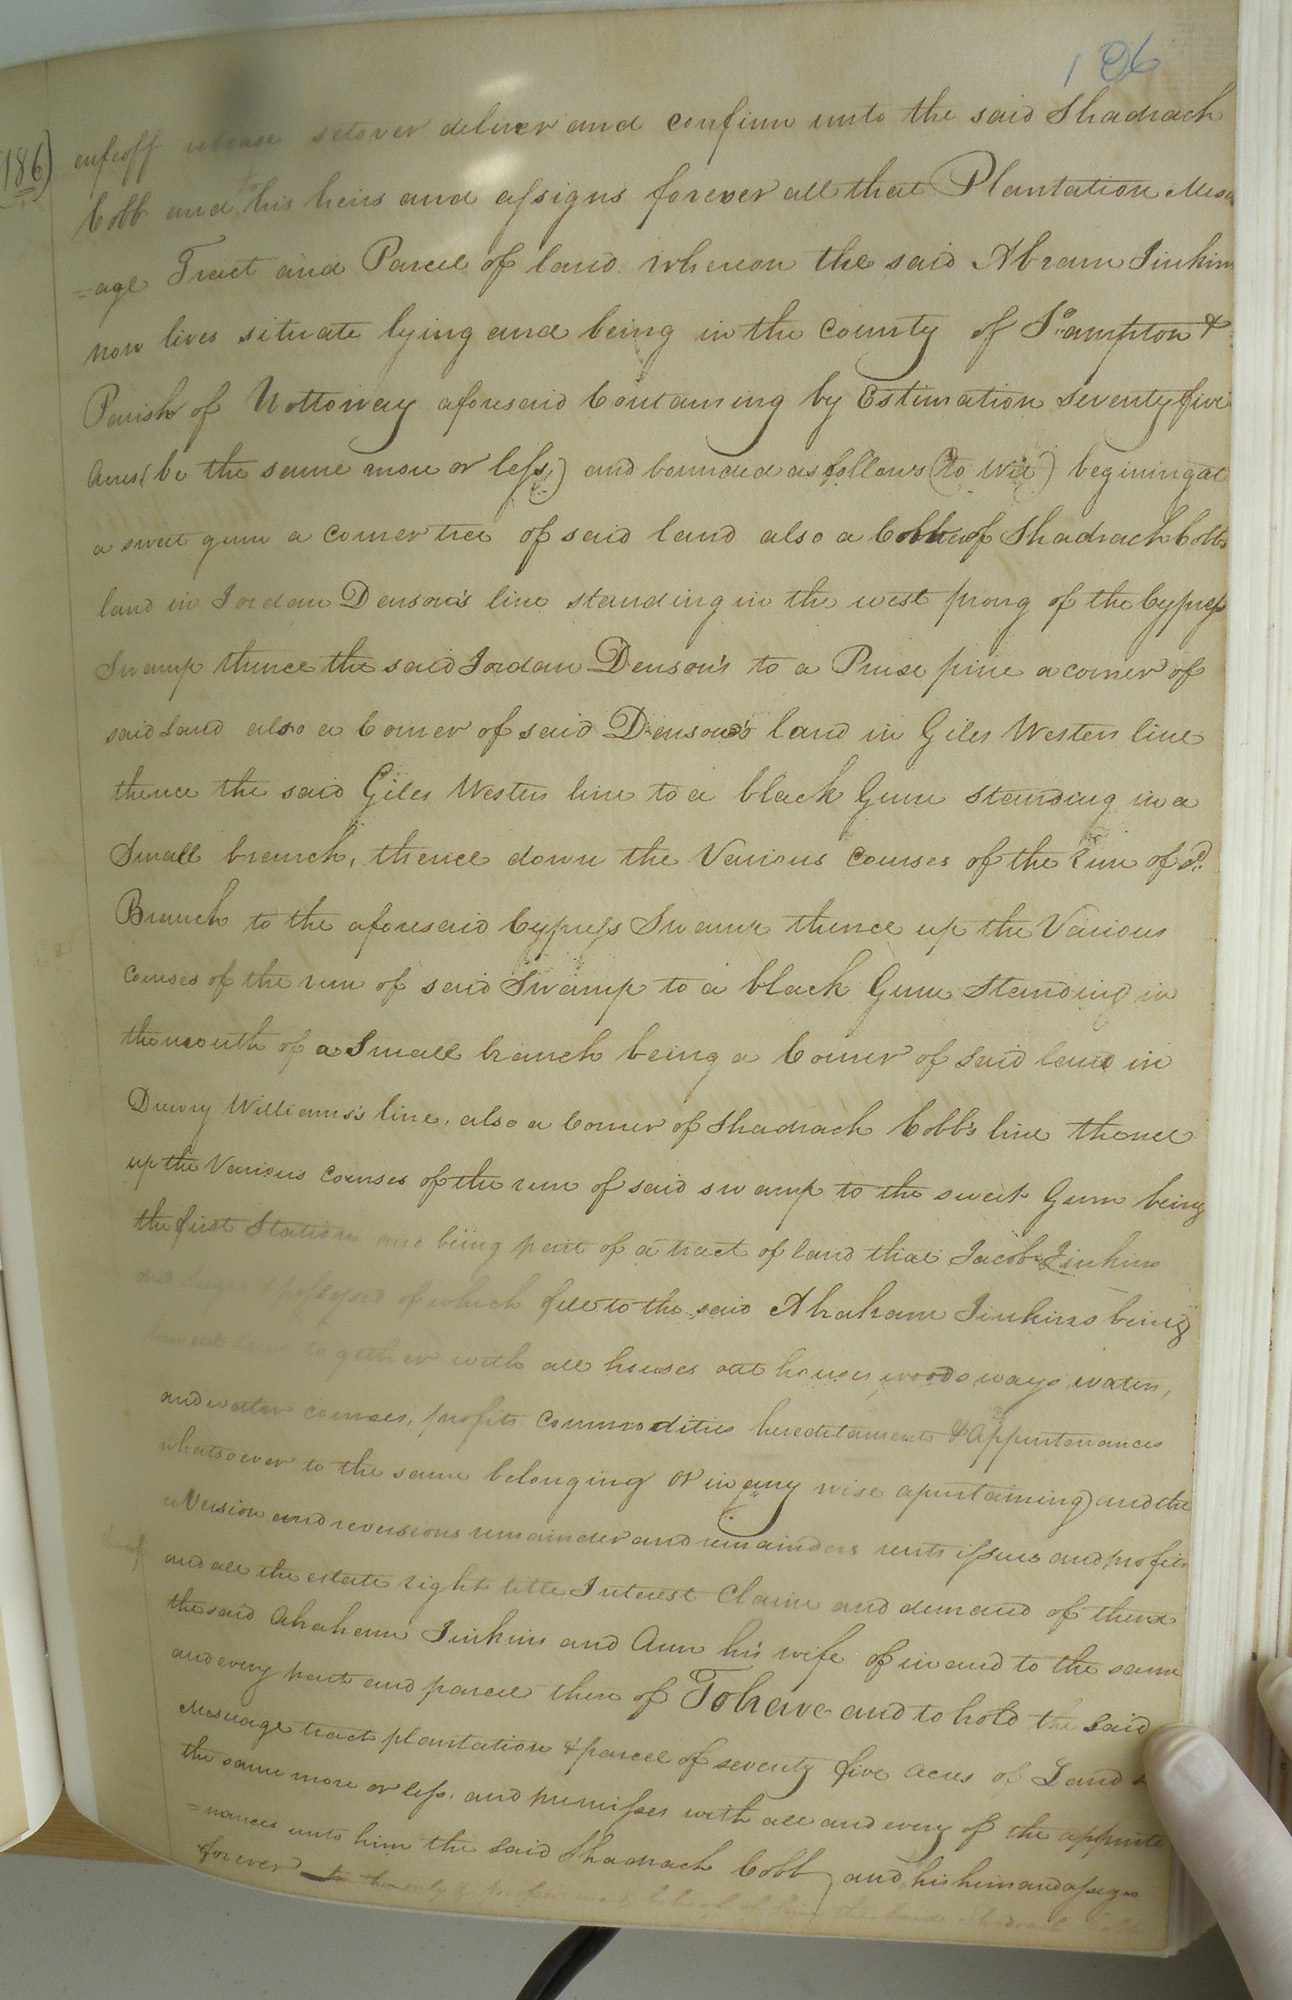 186
(186)
enfeoff release setover deliver and confirm unto the said Shadrach
Cobb and to his heirs and assigns forever all that Plantation Mesu
=age Tract and Parcel of land whereon the said Abram Jinkins
now lives situate lying and being in the County of So.ampton &
Parish of Nottoway aforesaid Containing by Estimation Seventy five
Acres (be the same more or less) and bounded as follows (to wit) begining at
a sweet gum a corner tree of said land also a of Shadrach Cobbs
land in Jordan Denson's line standing in the west prong of the Cypress
Swamp thence the said Jordan Denson's to a pine a corner of
said Land also a Corner of said Denson's land in Giles Westers line
thence the said Giles Westers line to a black Gum standing in a
Small branch, thence down the Various courses of the run of sd.
Branch to the aforesaid Cypress Swamp thence up the Various
courses of the run of said Swamp to a black Gum Standing in
the mouth of a Small branch being a Corner of said land in
Drewry Williams's line, also a Corner of Shadrach Cobb's line thence
up the Various Courses of the run of said swamp to the sweet Gum being
the first Station and being part of a tract of land that Jacob Jinkins
of which fell to the said Abraham Jinkins being
together with all houses out houses woods ways waters,
and water courses, profits Commodities hereditaments & Appurtenances
whatsoever to the same belonging or in any wise apurtaining) and the
reVersion and reversions remainder and remainders rents issues and profits
thereof
and all the estate right title Interest Claim and demand of them
the said Abraham Jinkins and Ann his wife of in and to the same
and every part and parcel there of To have and to hold the said
Messuage tract plantation & parcel of seventy five acres of Land
the same more or less, and premisses with all and every of the appurte
=nances unto him the said Shadrach Cobb and his heirs and assigns
forever to the only & proper use & behoof of him the said Shadrach Cobb